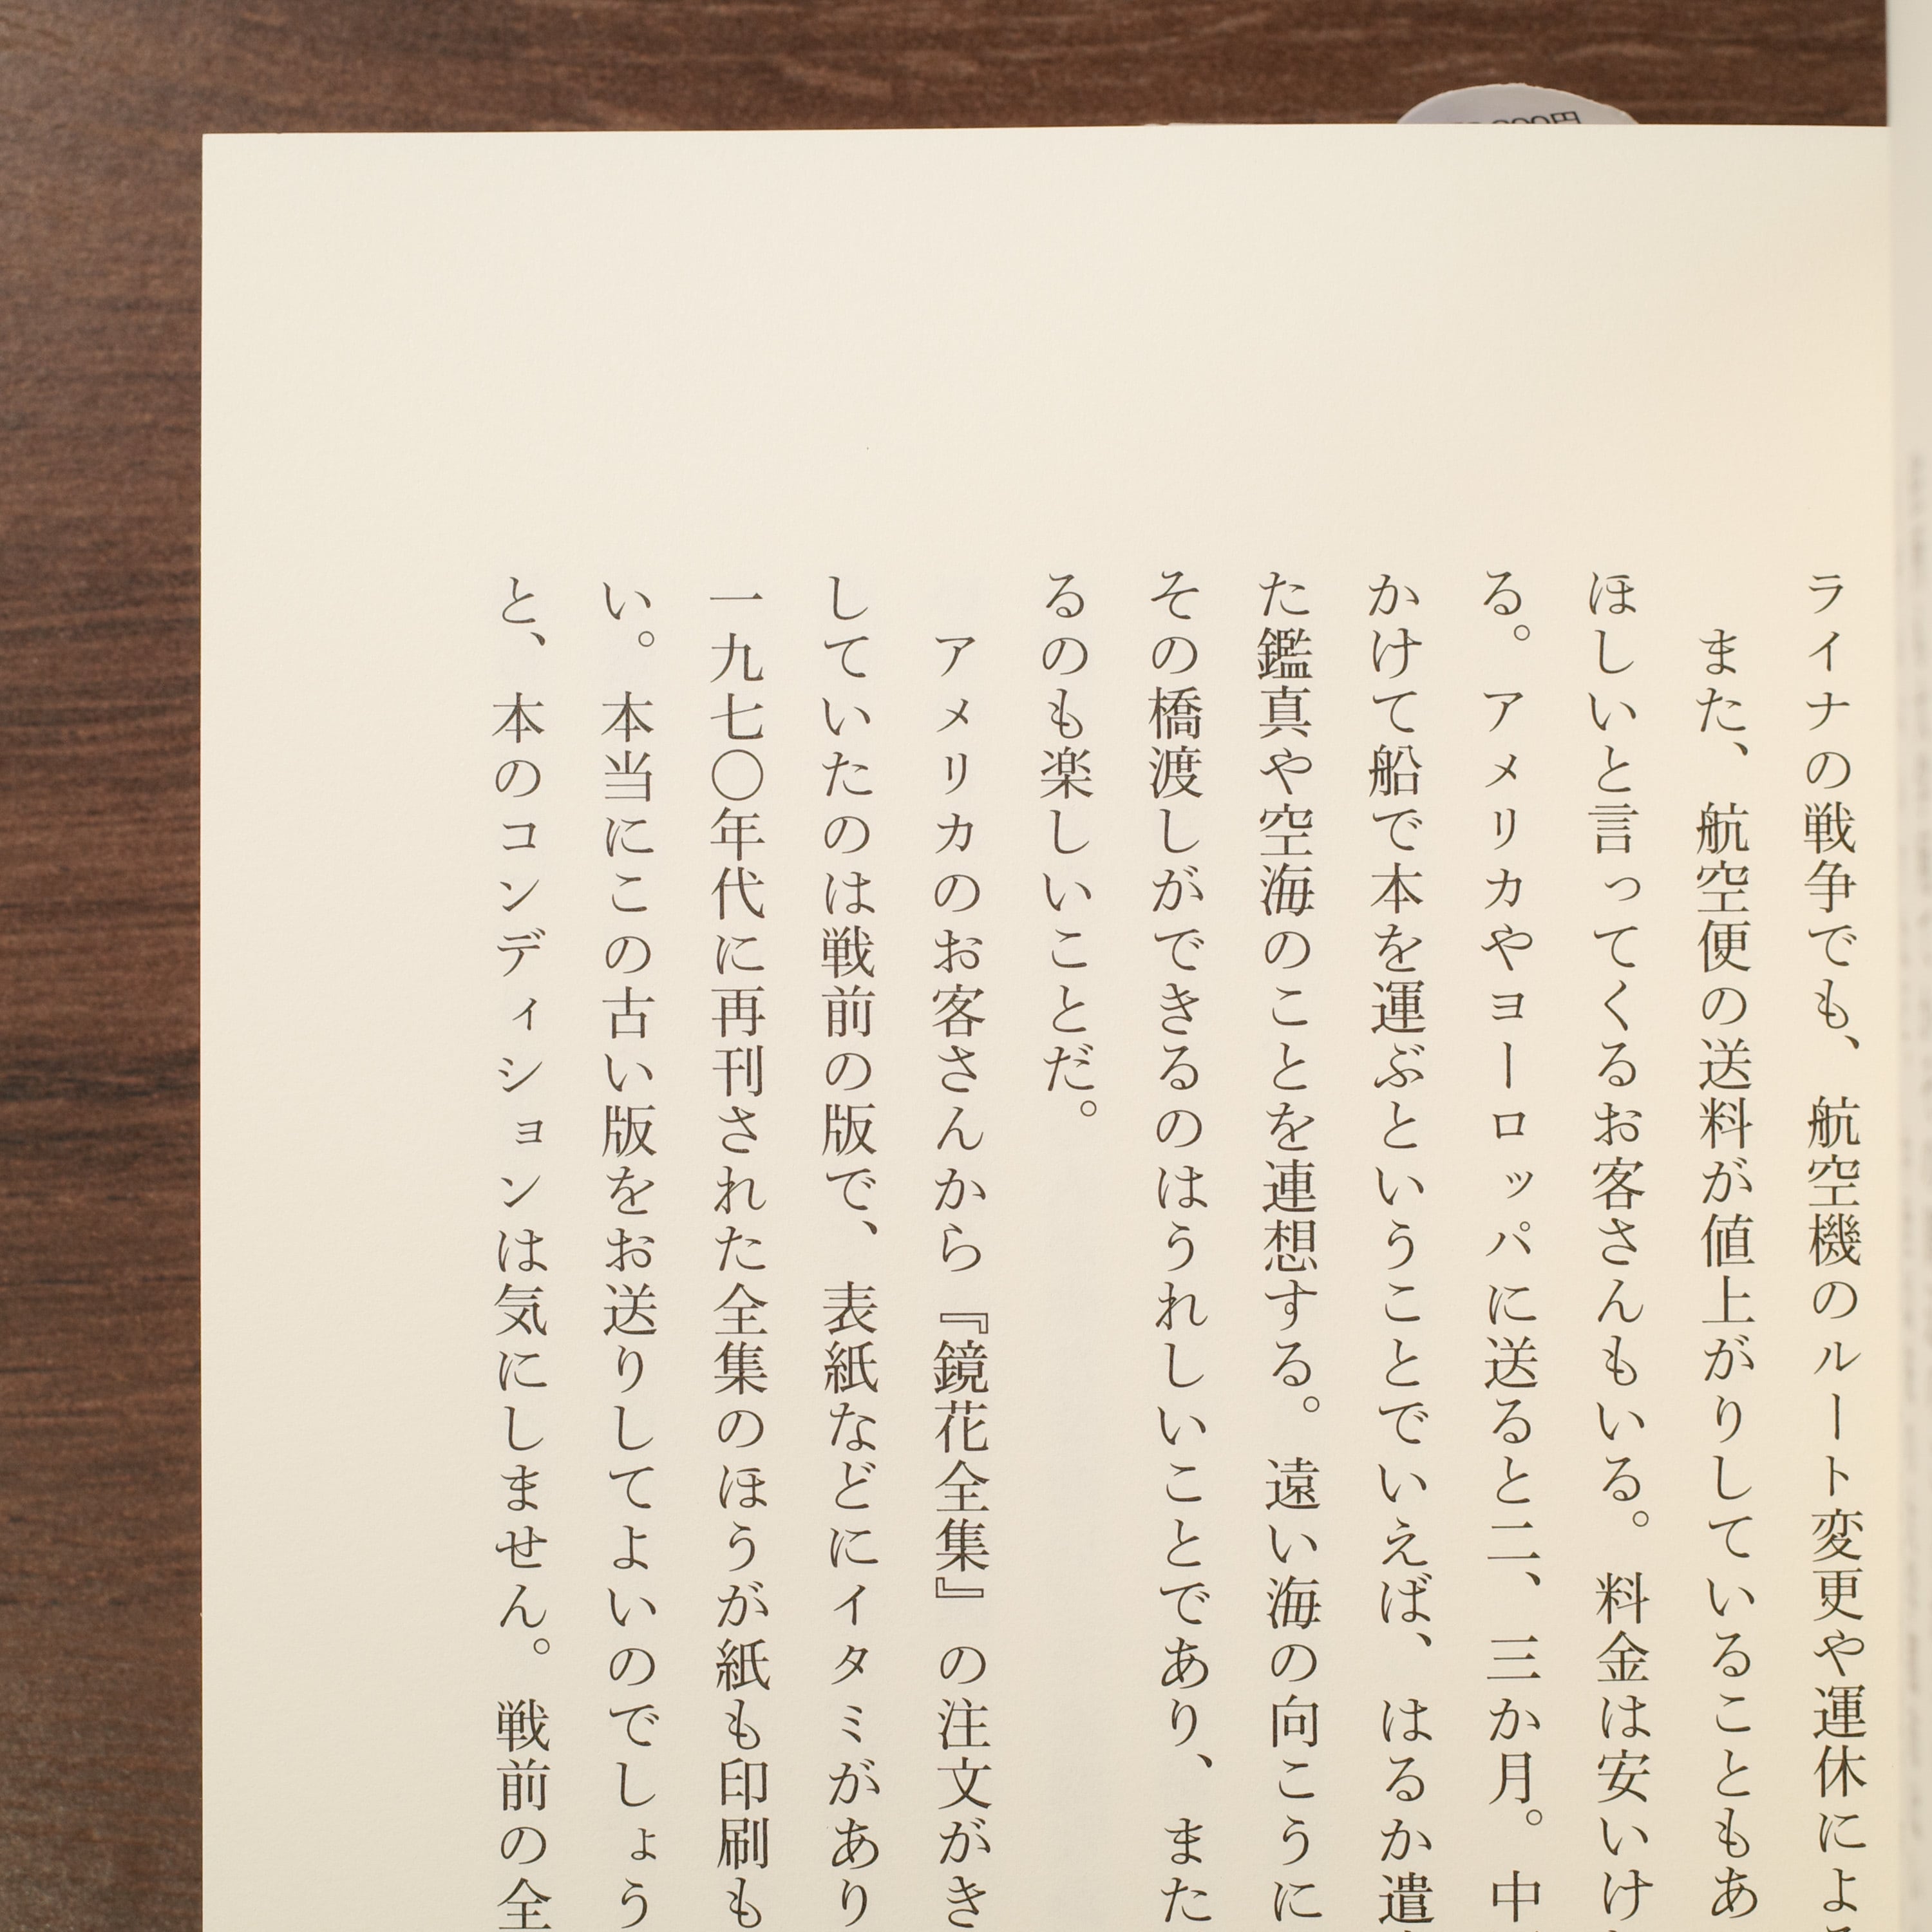 ライナの戦争でも、航空機のルート変更や運休によ
また、航空便の送料が値上がりしていることもあ
ほしいと言ってくるお客さんもいる。料金は安いけ
る。アメリカやヨーロッパに送ると二、三か月。中
かけて船で本を運ぶということでいえば、はるか遣
た鑑真や空海のことを連想する。遠い海の向こうに
その橋渡しができるのはうれしいことであり、また
るのも楽しいことだ。
アメリカのお客さんから『鏡花全集』の注文がき
していたのは戦前の版で、表紙などにイタミがあり
一九七〇年代に再刊された全集のほうが紙も印刷も
い。本当にこの古い版をお送りしてよいのでしょう
と、本のコンディションは気にしません。戦前の全